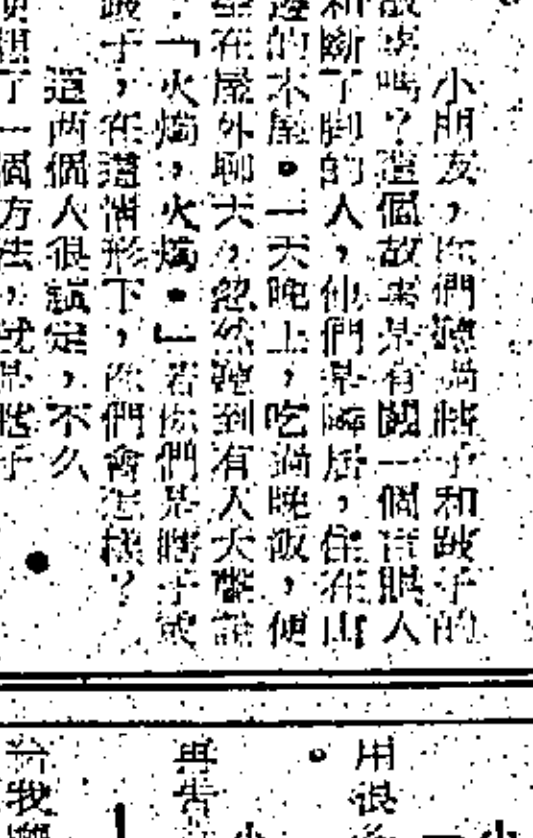 小朋友，你們聽過瞎子和跛子的
故事嗎？這個故事是有關一個盲眼人
和斷了脚的人，他們是隣居，住在山
邊的木屋。一天晚上，吃過晚飯，便
坐在屋外聊天，忽然聽到有人大聲說
：「火燭，火燭。」若你們是瞎子或
跛子，在這情形下，你們會怎樣？
這兩個人很鎮定，不久
便想了一個方法，就是瞎子
用很
再告
給我